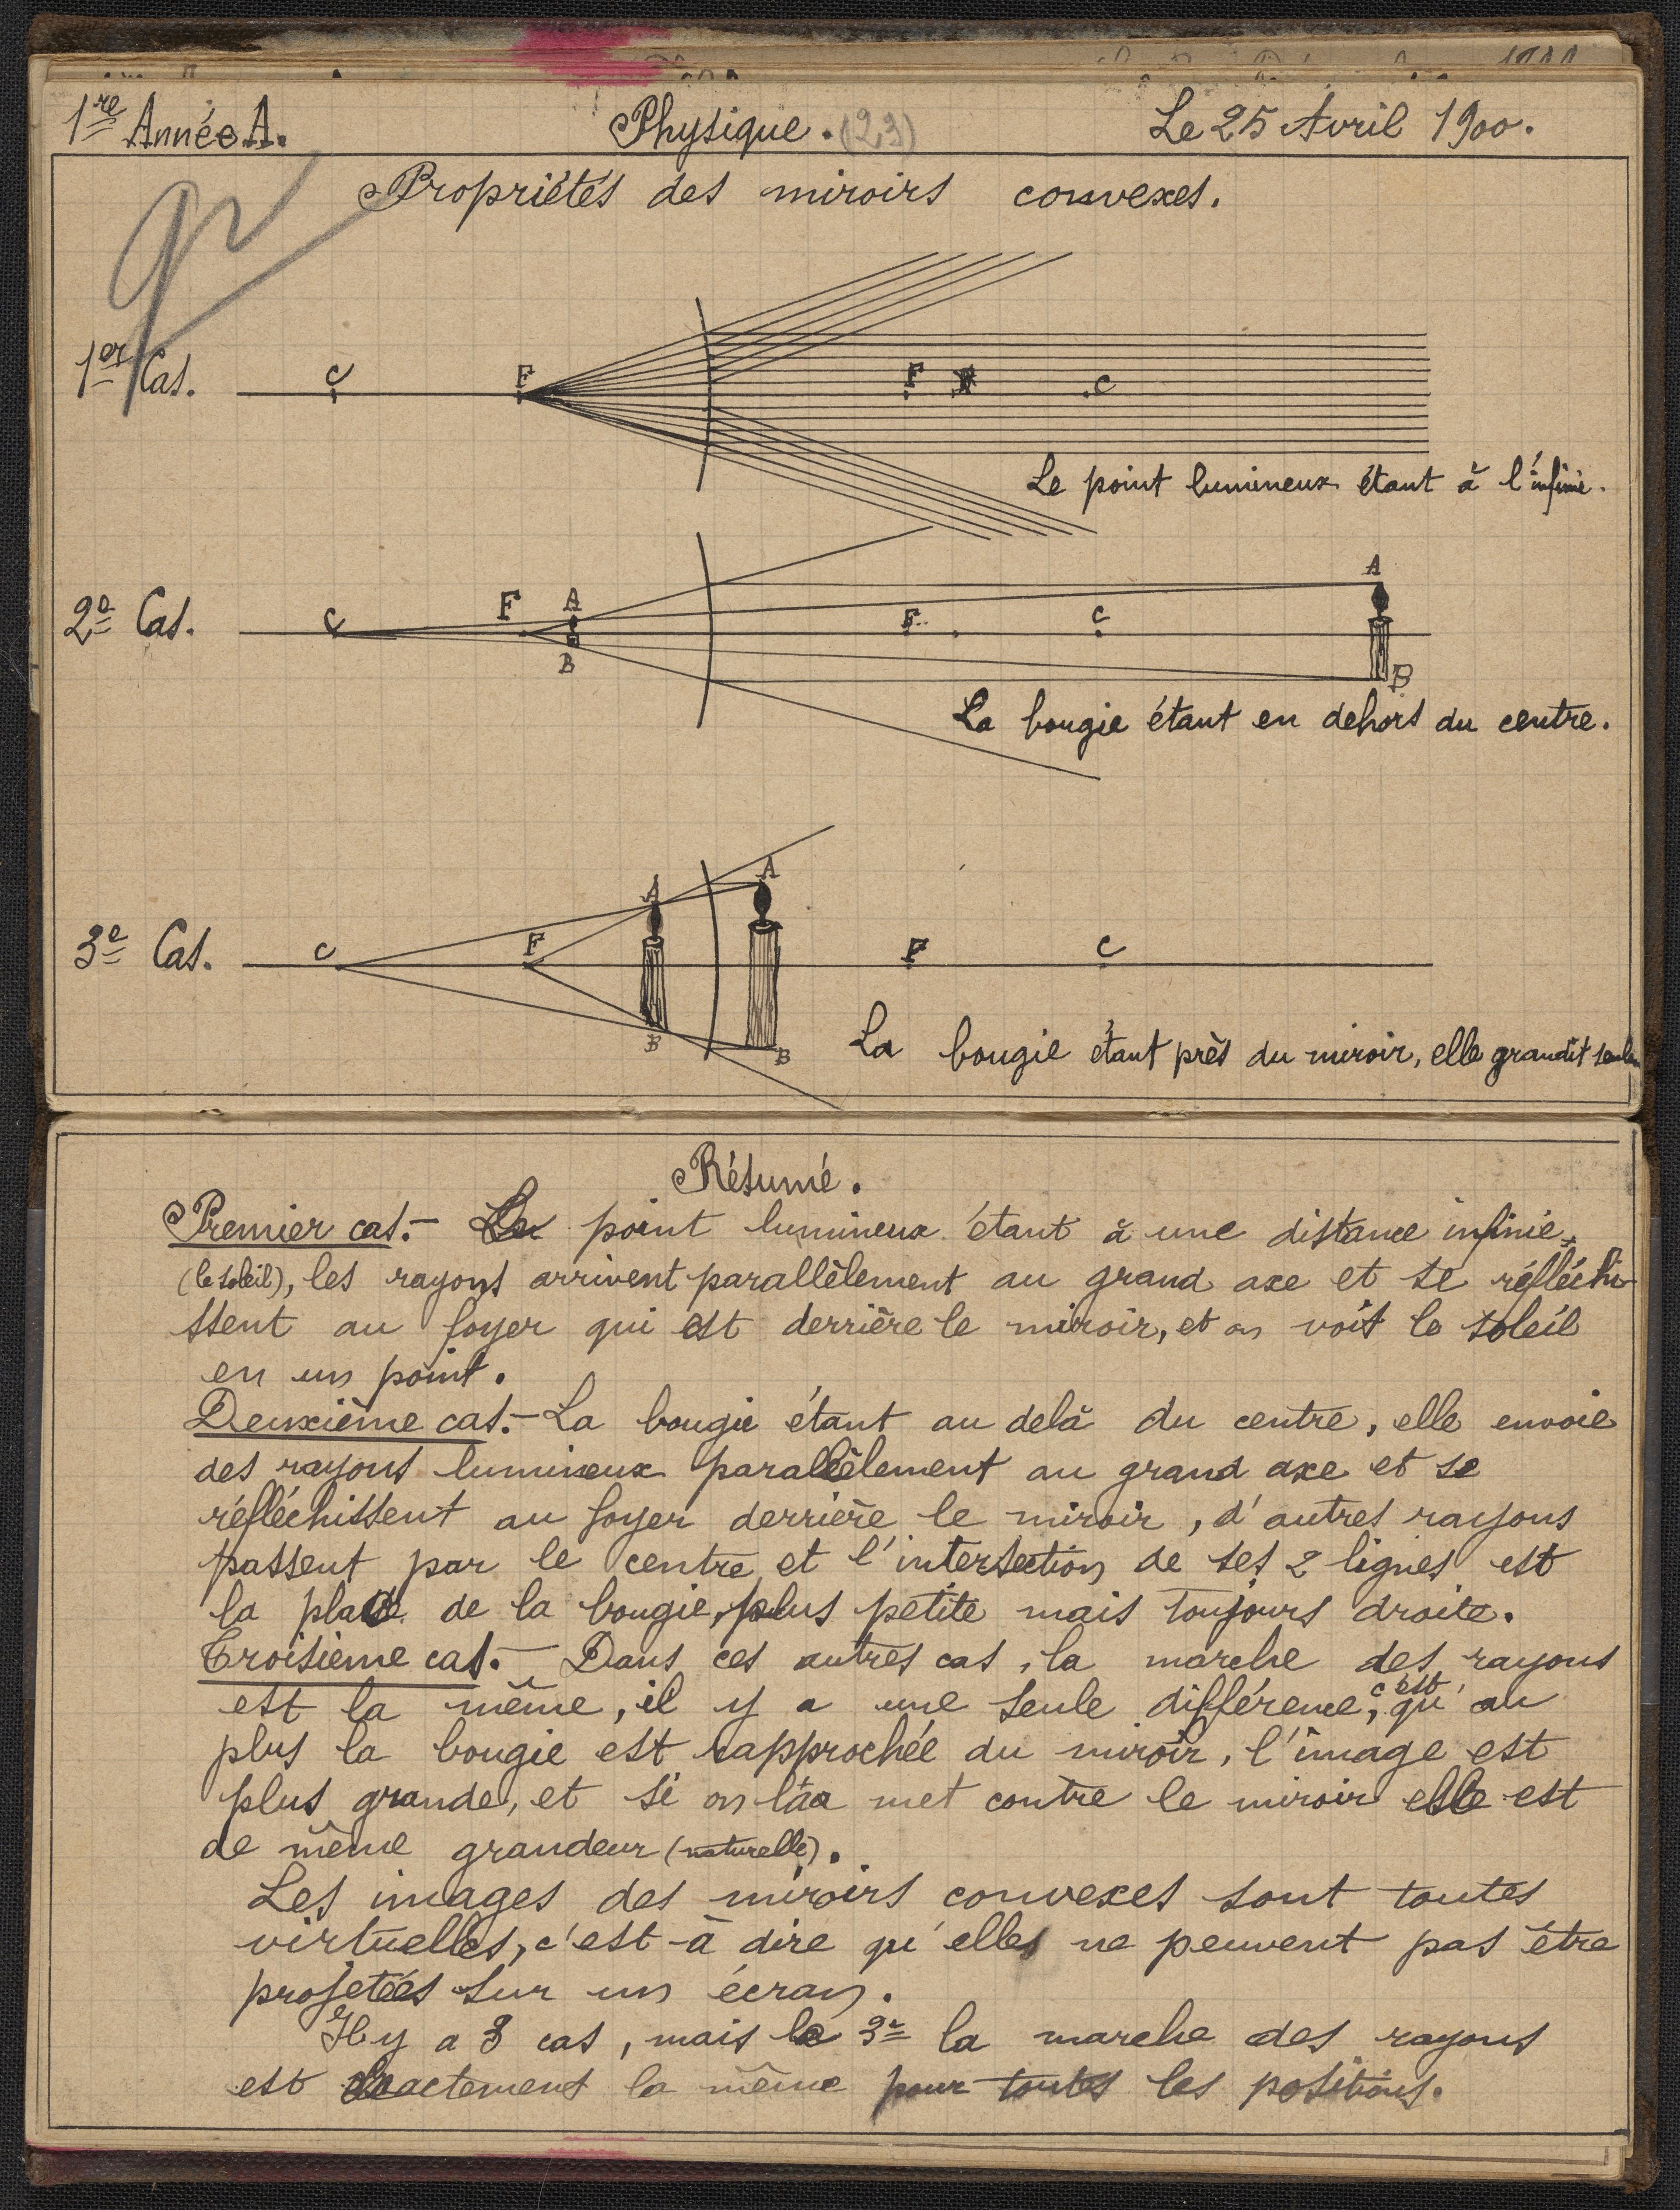 1re Année A.
Physique. (23)
Le 25 Avril 1900.
Propriétés des miroirs convexes.
1er Cas.
C F F C
Le point lumineux étant à l'infini.
2e Cas.
C F A B F C A B
La bougie étant en dehors du centre.
3e Cas.
C F A B A B F C
La bougie étant près du miroir, elle grandit
Résumé.
Premier cas.- Le point lumineux étant à une distance infinie
(le soleil), les rayons arrivent parallèlement au grand axe et se réfléchi-
ssent au foyer qui est derrière le miroir, et on voit le soleil
en un point.
Deuxième cas.- La bougie étant au delà du centre, elle envoie
des rayons lumineux parallèlement au grand axe et se
réfléchissent au foyer derrière le miroir, d'autres rayons
passent par le centre et l'intersection de ses 2 lignes est
la place de la bougie, plus petite mais toujours droite.
Troisième cas.- Dans ces autres cas, la marche des rayons
est la même, il y a une seule différence, c'est qu'au
plus la bougie est rapprochée du miroir, l'image est
plus grande, et si on la met contre le miroir elle est
de même grandeur (naturelle).
Les images des miroirs convexes sont toutes
virtuelles, c'est-à dire qu'elles ne peuvent pas être
projetées sur un écran.
Il y a 3 cas, mais le 3e la marche des rayons
est exactement la même pour toutes les positions.